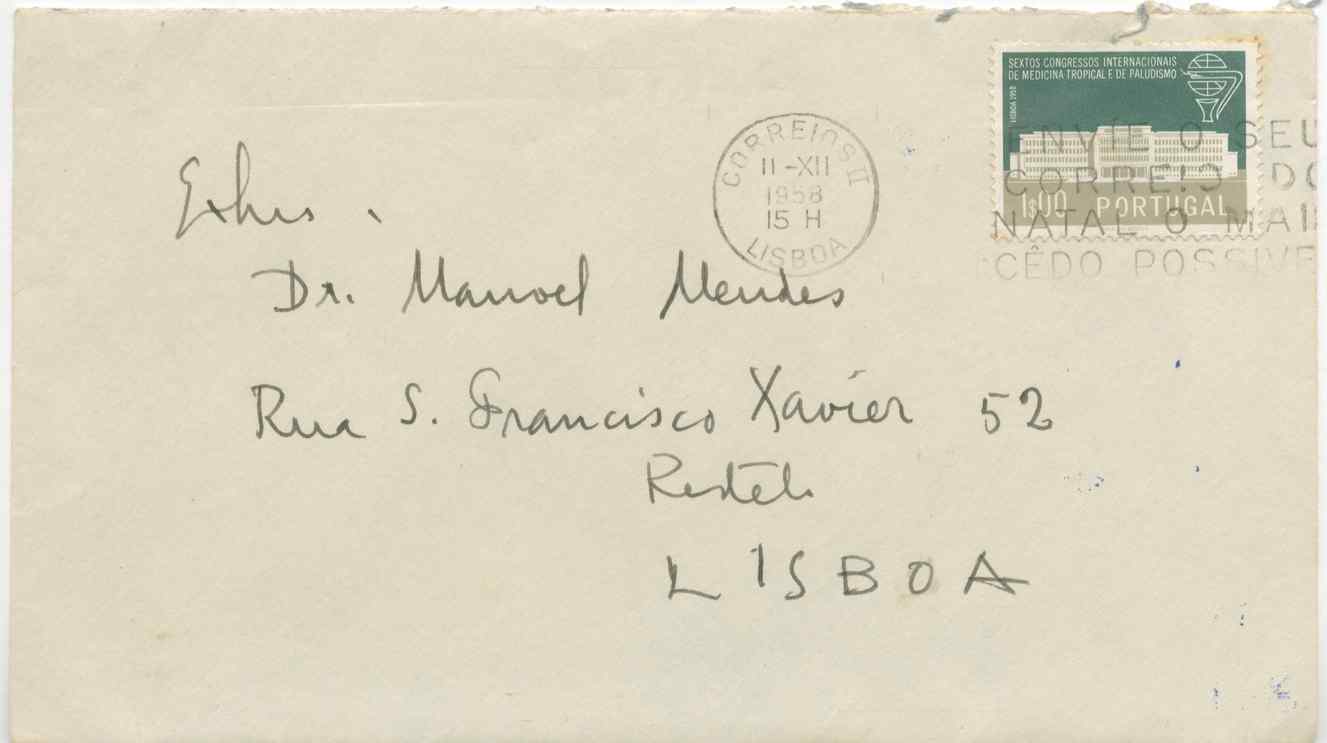 SEXTOS CONGRESSOS INTERNACIONAIS
DE MEDICINA TROPICAL E DE PALUDISMO
LISBOA 1958
1$00 PORTUGAL
CORREIOS II
11-XII
1958
15 H
LISBOA
ENVIE O SEU
CORREIO DO
NATAL O MAI
CÊDO POSSIVE
Dr. Manoel Mendes
Rua S. Francisco Xavier 52
Restelo
LISBOA